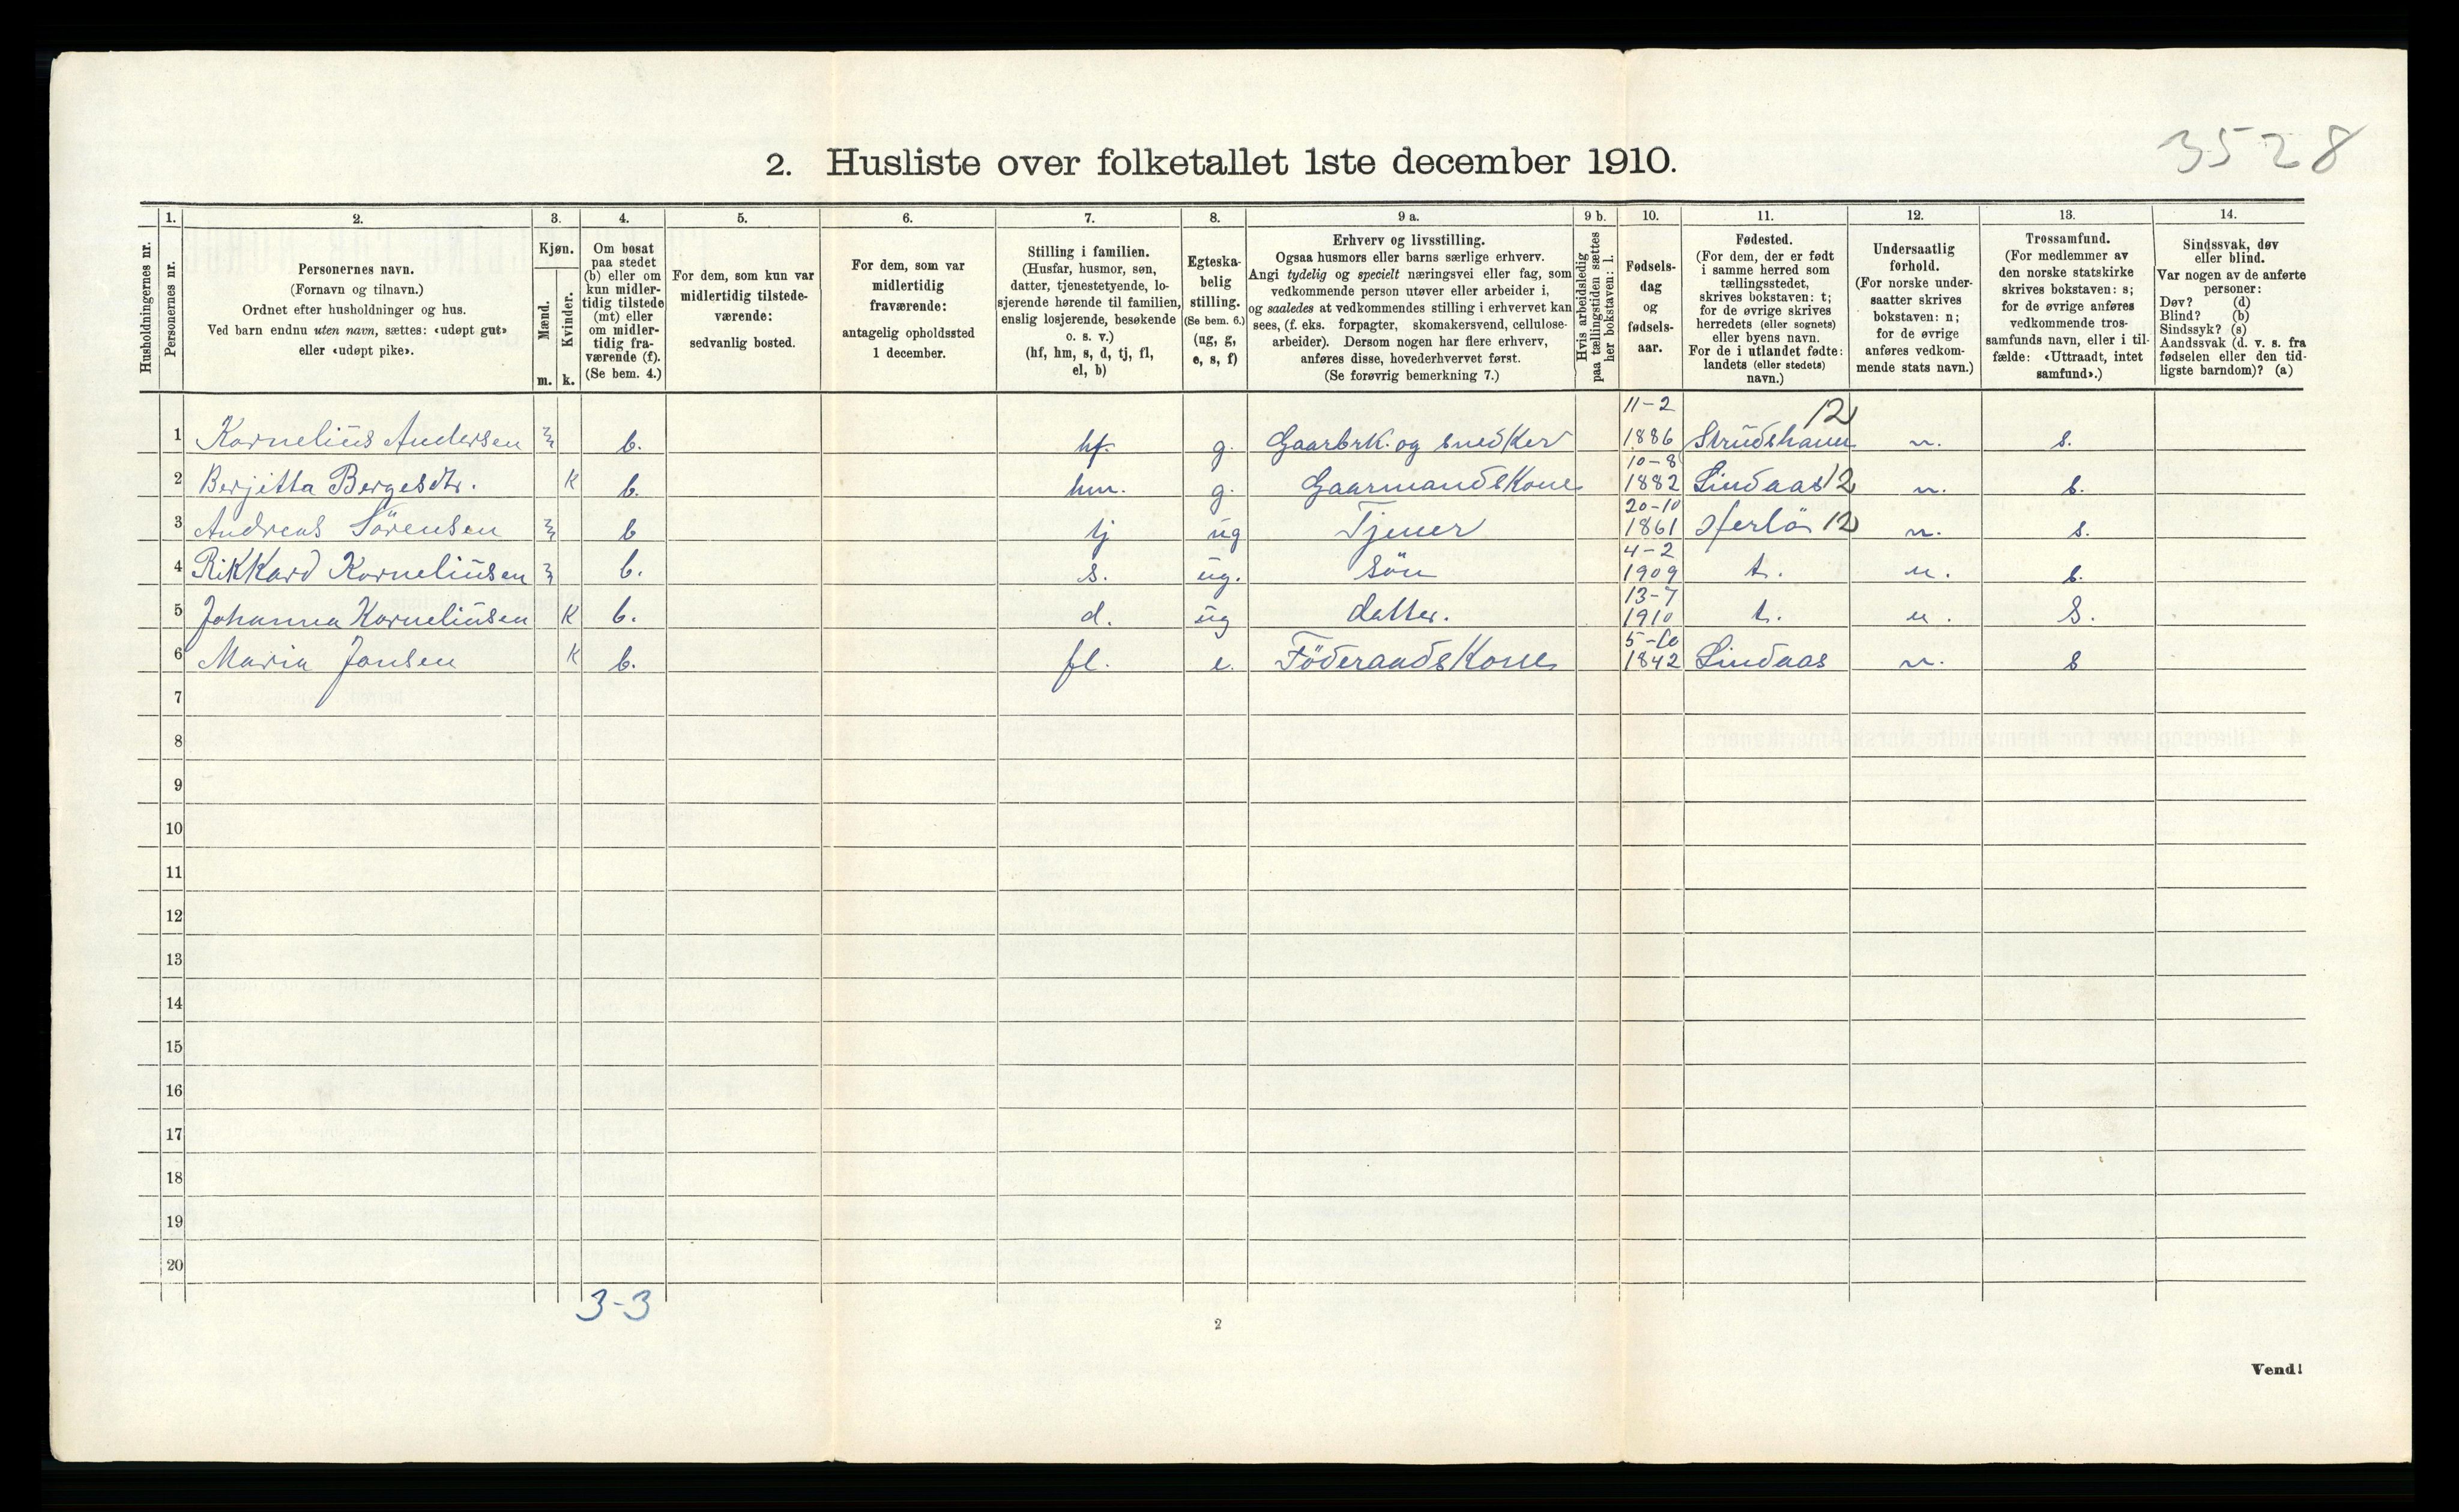 3528
2. Husliste over folketallet 1ste december 1910.
Husholdningernes nr.
1. Personernes nr.
2. Personernes navn.
(Fornavn og tilnavn.)
Ordnet efter husholdninger og hus.
Ved barn endnu uten navn, sættes: «udøpt gut»
eller «udøpt pike».
3. Kjøn.
Mænd. m.
Kvinder. k.
4. Om bosat
paa stedet
(b) eller om
kun midler-
tidig tilstede
(mt) eller
om midler-
tidig fra-
værende (f).
(Se bem. 4.)
5. For dem, som kun var
midlertidig tilstede-
værende:
sedvanlig bosted.
6. For dem, som var
midlertidig
fraværende:
antagelig opholdssted
1 december.
7. Stilling i familien.
(Husfar, husmor, søn,
datter, tjenestetyende, lo-
sjerende hørende til familien,
enslig losjerende, besøkende
o. s. v.)
(hf, hm, s, d, tj, fl,
el, b)
8. Egteska-
belig
stilling.
(Se bem. 6.)
(ug, g,
e, s, f)
9 a. Erhverv og livsstilling.
Ogsaa husmors eller barns særlige erhverv.
Angi tydelig og specielt næringsvei eller fag, som
vedkommende person utøver eller arbeider i,
og saaledes at vedkommendes stilling i erhvervet kan
sees, (f. eks. forpagter, skomakersvend, cellulose-
arbeider). Dersom nogen har flere erhverv,
anføres disse, hovederhvervet først.
(Se forøvrig bemerkning 7.)
9 b. Hvis arbeidsledig
paa tællingstiden sættes
her bokstaven: l.
10. Fødsels-
dag
og
fødsels-
aar.
11. Fødested.
(For dem, der er født
i samme herred som
tællingsstedet,
skrives bokstaven: t;
for de øvrige skrives
herredets (eller sognets)
eller byens navn.
For de i utlandet fødte:
landets (eller stedets)
navn.)
12. Undersaatlig
forhold.
(For norske under-
saatter skrives
bokstaven: n;
for de øvrige
anføres vedkom-
mende stats navn.)
13. Trossamfund.
(For medlemmer av
den norske statskirke
skrives bokstaven: s;
for de øvrige anføres
vedkommende tros-
samfunds navn, eller i til-
fælde: «Uttraadt, intet
samfund».)
14. Sindssvak, døv
eller blind.
Var nogen av de anførte
personer:
Døv? (d)
Blind? (b)
Sindssyk? (s)
Aandssvak (d. v. s. fra
fødselen eller den tid-
ligste barndom)? (a)
1 Kornelius Andersen m b. hf. g. Gaarbrk. og snedker 11-2 1886 Strudshavn 12 n. s.
2 Berjitta Bergesdtr. K b. hm. g. Gaarmandskone 10-8 1882 Lindaas 12 n. s.
3 Andreas Sörensen m b tj ug Tjener 20-10 1861 Herlö 12 n. s.
4 Rikkard Korneliusen m b. s. ug. Sön 4-2 1909 t. n. s.
5 Johanna Korneliusen K b. d. ug datter. 13-7 1910 t. n. S.
6 Maria Jonsen K b. fl. e. Föderaadskone 5-10 1842 Lindaas n. s
7
8
9
10
11
12
13
14
15
16
17
18
19
20
3-3
2
Vend!